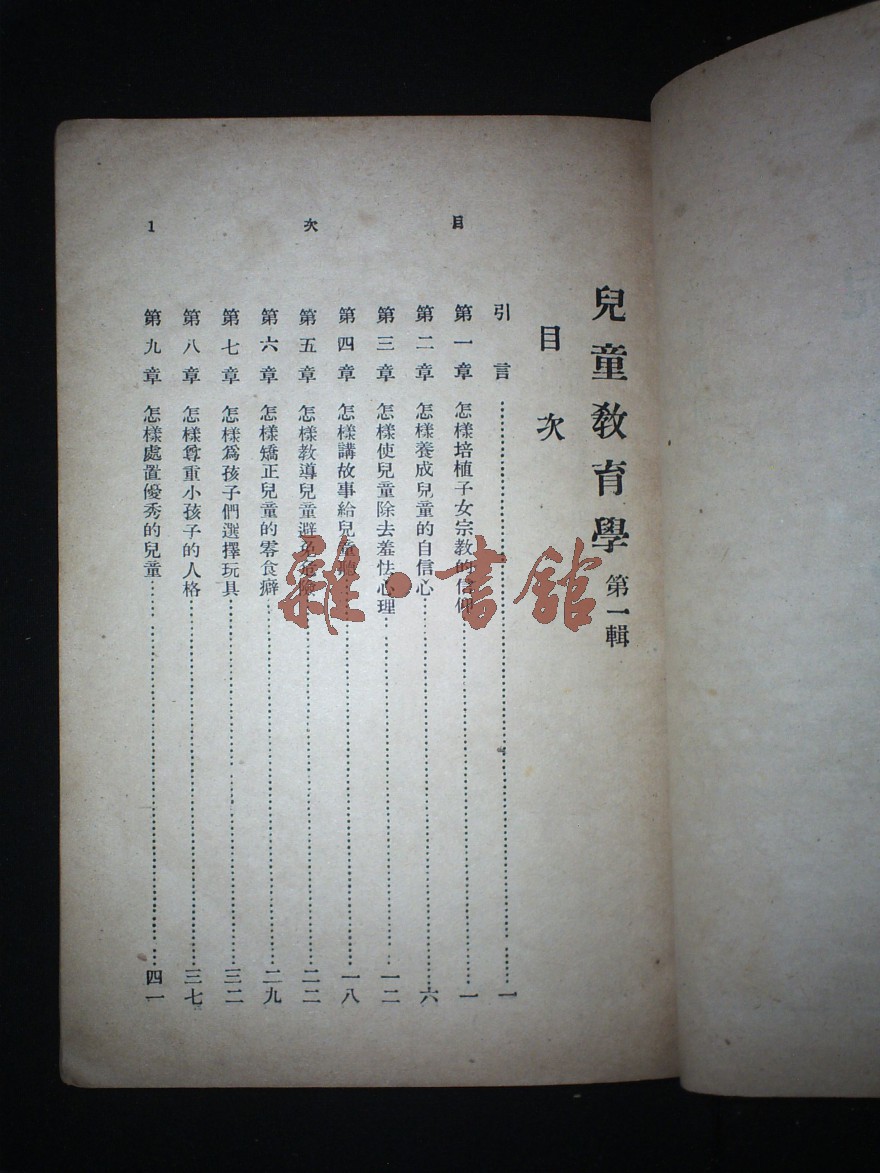 兒童教育學 第一輯
目次
引言 一
第一章 怎樣培植子女宗教的信仰 一
第二章 怎樣養成兒童的自信心 六
第三章 怎樣使兒童除去羞怯心理 一二
第四章 怎樣講故事給兒童聽 一八
第五章 怎樣教導兒童避免危險 二二
第六章 怎樣矯正兒童的零食癖 二九
第七章 怎樣爲孩子們選擇玩具 三二
第八章 怎樣尊重小孩子的人格 三七
第九章 怎樣處置優秀的兒童 四一
目次 1
雜·書館